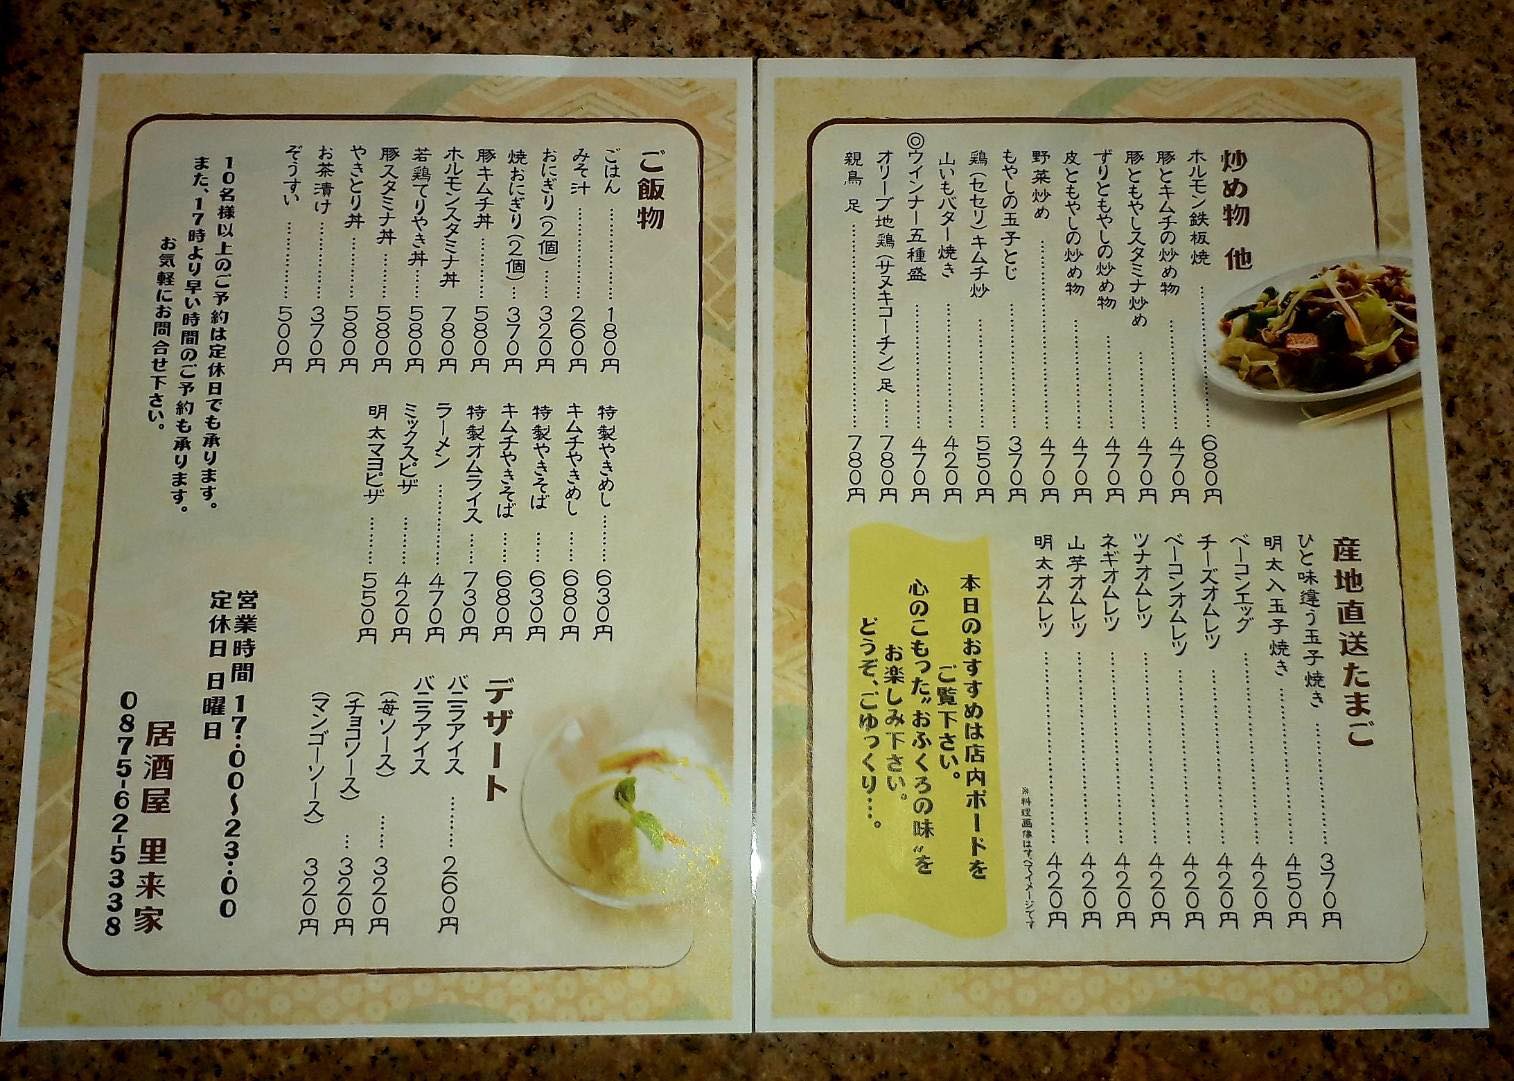 炒め物 他
ホルモン鉄板焼 680円
豚とキムチの炒め物 470円
豚ともやしスタミナ炒め 470円
ずりともやしの炒め物 470円
皮ともやしの炒め物 470円
野菜炒め 470円
もやしの玉子とじ 370円
鶏(セセリ)キムチ炒 550円
山いもバター焼き 420円
◎ウインナー五種盛 470円
オリーブ地鶏(サヌキコーチン)足 780円
親鳥 足 780円
産地直送たまご
ひと味違う玉子焼き 370円
明太入玉子焼き 450円
ベーコンエッグ 420円
チーズオムレツ 420円
ベーコンオムレツ 420円
ツナオムレツ 420円
ネギオムレツ 420円
山芋オムレツ 420円
明太オムレツ 420円
※料理画像はすべてイメージです
本日のおすすめは店内ボードを
ご覧下さい。
心のこもった"おふくろの味"を
お楽しみ下さい。
どうぞ、ごゆっくり…。
ご飯物
ごはん 180円
みそ汁 260円
おにぎり(2個) 320円
焼おにぎり(2個) 370円
豚キムチ丼 580円
ホルモンスタミナ丼 780円
若鶏てりやき丼 580円
豚スタミナ丼 580円
やきとり丼 580円
お茶漬け 370円
ぞうすい 500円
特製やきめし 630円
キムチやきめし 680円
特製やきそば 630円
キムチやきそば 680円
特製オムライス 730円
ラーメン 470円
ミックスピザ 420円
明太マヨピザ 550円
デザート
バニラアイス 260円
バニラアイス
(苺ソース) 320円
(チョコソース) 320円
(マンゴーソース) 320円
10名様以上のご予約は定休日でも承ります。
また、17時より早い時間のご予約も承ります。
お気軽にお問合せ下さい。
営業時間 17:00〜23:00
定休日 日曜日
居酒屋 里来家
0875-62-5338